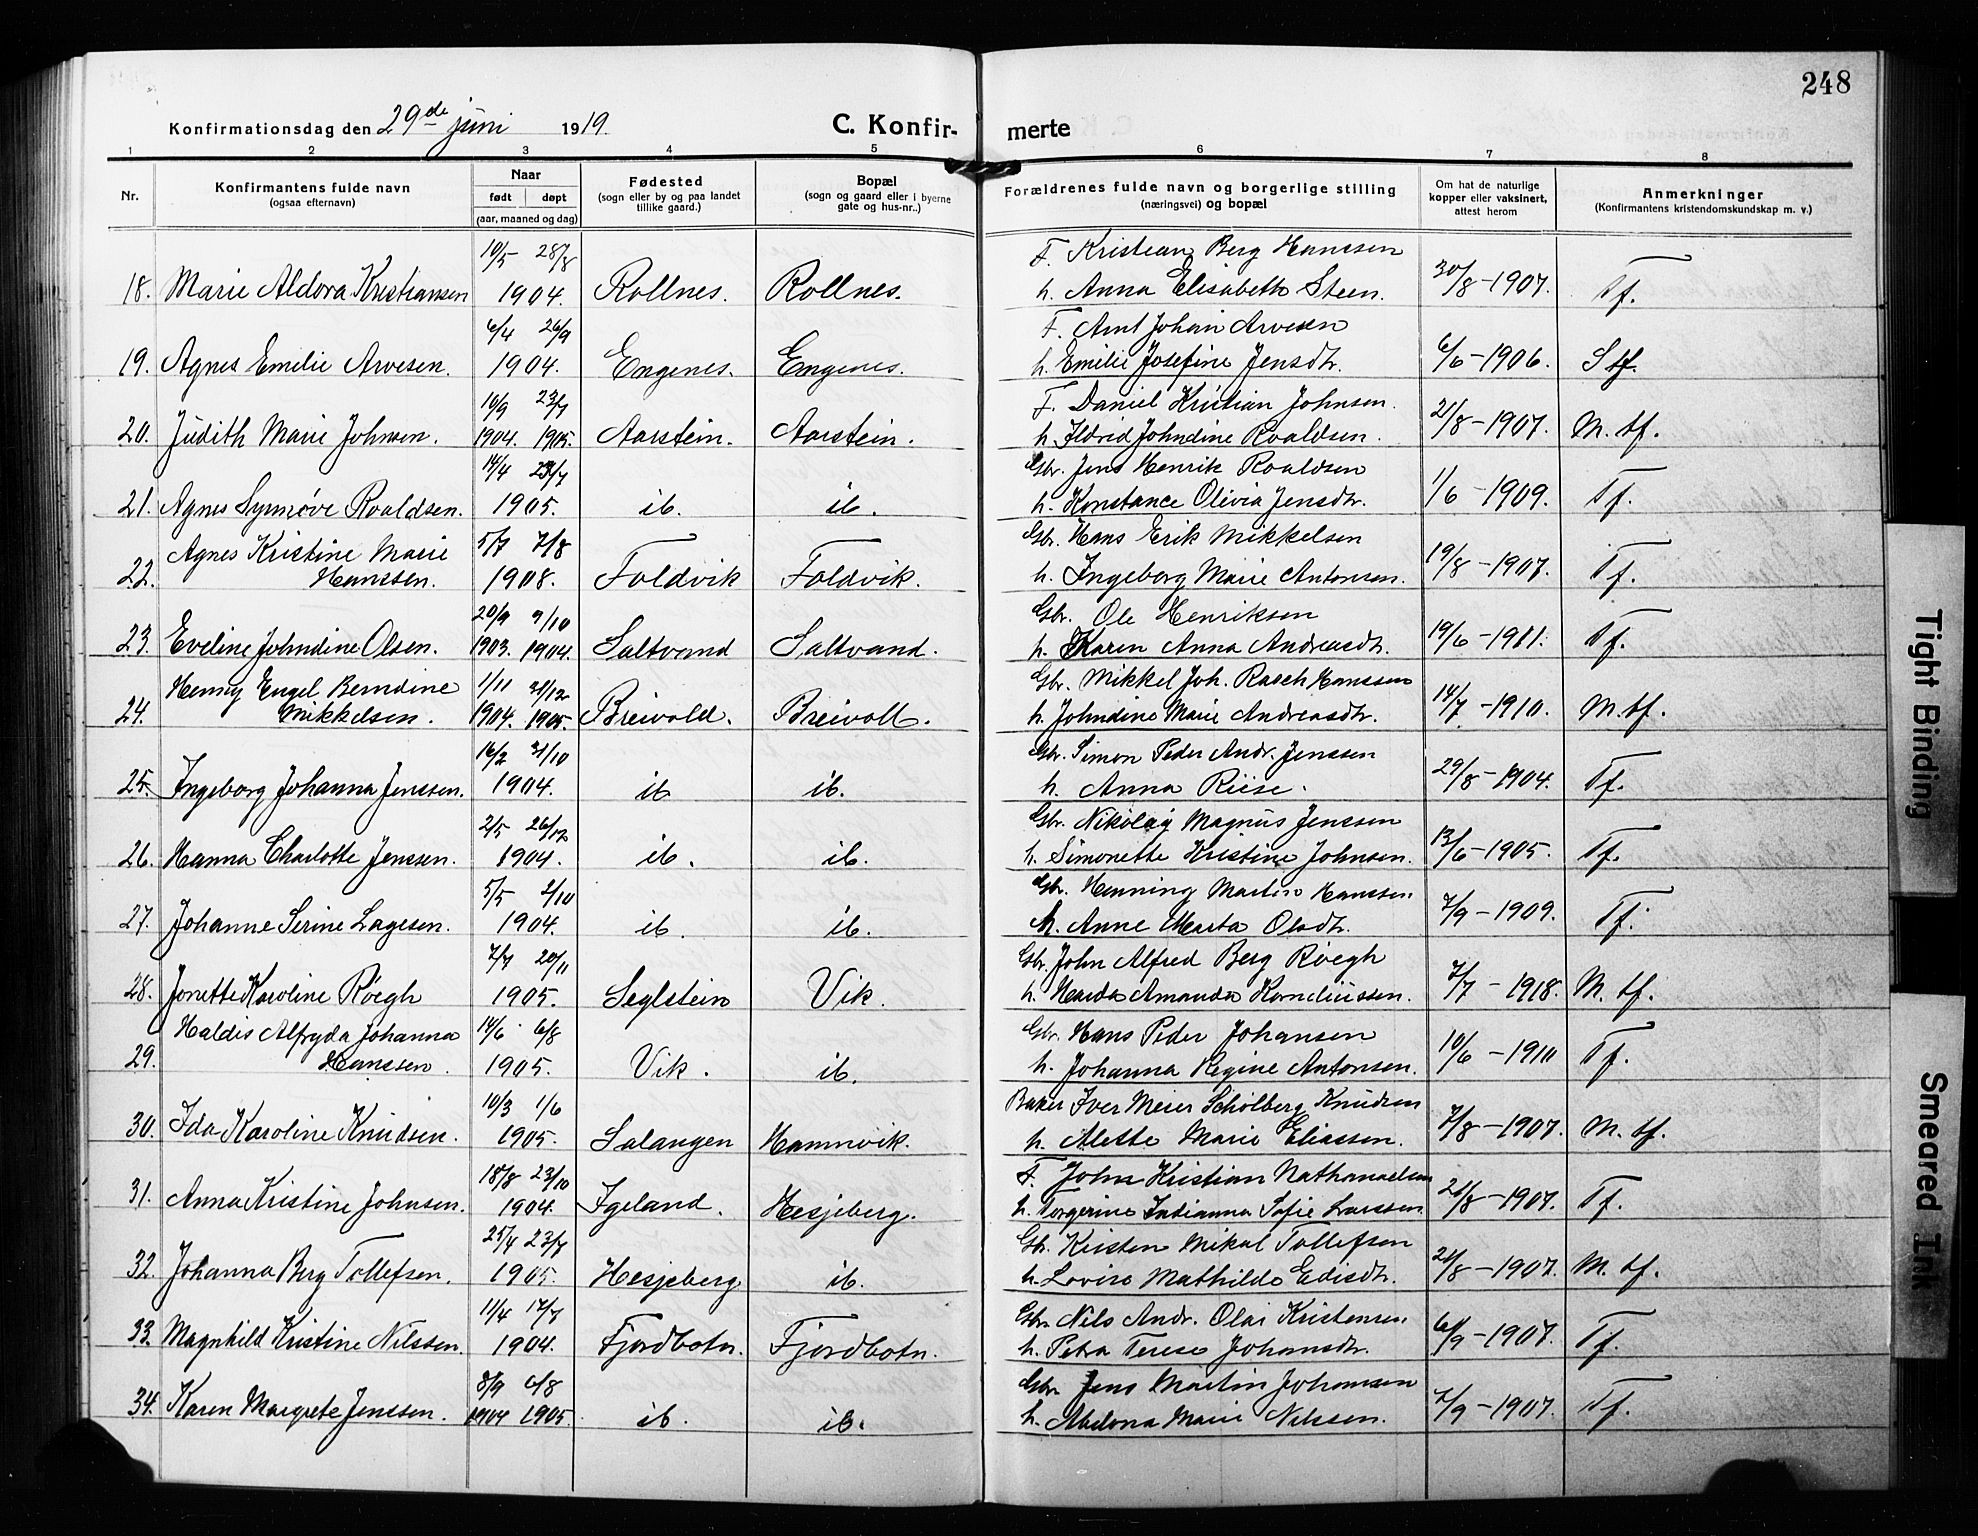 248
Konfirmationsdag den 29de juni 1919.
C. Konfir- merte
1 2 3 4 5 6 7 8
Nr.
Konfirmantens fulde navn
(ogsaa efternavn)
Naar
født døpt
(aar, maaned og dag)
Fødested
(sogn eller by og paa landet
tillike gaard.)
Bopæl
(sogn og gaard eller i byerne
gate og hus-nr..)
Forældrenes fulde navn og borgerlige stilling
(næringsvei) og bopæl
Om hat de naturlige
kopper eller vaksinert,
attest herom
Anmerkninger
(Konfirmantens kristendomskundskap m. v.)
10/5 28/8 F. Kristian Berg Hanssen
18. Marie Aldora Kristiansen 1904. Rollnes. Rollnes. h. Anna Elisabeth Steen. 30/8-1907. Tf.
6/4 26/9 F. Arnt Johan Arvesen
19. Agnes Emilie Arvesen. 1904. Engenes. Engenes. h. Emilie Josefine Jensdtr. 6/6-1906. Stf.
10/9 23/7 F. Daniel Kristian Johnsen.
20. Judith Marie Johnsen. 1904. 1905. Aarstein. Aarstein. h. Ildrid Johndine Roaldsen. 21/8-1907. M. tf.
14/4 23/7 Gbr. Jens Henrik Roaldsen
21. Agnes Synnøve Roaldsen. 1905. ib. ib. h. Konstance Olivia Jensdtr. 1/6-1909. Tf.
Agnes Kristine Marie 5/7 7/8 Gbr. Hans Erik Mikkelsen
22. Hanssen. 1908. Foldvik Foldvik. h. Ingeborg Marie Antonsen. 19/8-1907. Tf.
20/9 9/10 Gbr. Ole Henriksen
23. Eveline Johndine Olsen. 1903. 1904. Saltvand Saltvand. h. Karen Anna Andreasdtr. 19/6-1911. Tf.
Henny Engel Berndine 1/11 31/12 Gbr. Mikkel Joh. Rasch Hanssen
24. Mikkelsen. 1904. 1905. Breivold. Breivoll. h. Johndine Marie Andreasdtr. 14/7-1910. M. tf.
16/2 31/10 Gbr. Simon Peder Andr. Jenssen
25. Ingeborg Johanna Jenssen. 1904. ib. ib. h. Anna Riise. 29/8-1904. Tf.
2/5 26/12 Gbr. Nikolay Magnus Jenssen
26. Hanna Charlotte Jenssen. 1904. ib. ib. h. Simonette Kristine Johnsen. 13/6-1905. Tf.
5/5 2/10 Gbr. Henning Martin Hanssen
27. Johanne Serine Lagesen. 1904. ib. ib. h. Anne Marta Olsdtr. 7/9-1909. Tf.
7/7 20/11 Gbr. John Alfred Berg Røegh
28. Jonette Karoline Røegh 1905. Seglstein Vik. h. Amanda Korneliussen. 7/7-1918. M. tf.
Haldis Alfryda Johanna 14/6 6/8 Gbr. Hans Peder Johansen
29. Hanssen. 1905. Vik. ib. h. Johanna Regine Antonsen. 10/6-1910 Tf.
10/3 1/6 Baker Iver Meier Schølberg Knudsen
30. Ida Karoline Knudsen. 1905. Salangen Hamnvik. h. Alette Marie Eliassen. 7/8-1907. M. tf.
18/8 23/10 F. John Kristian Nathanaelsen
31. Anna Kristine Johnsen. 1904. Igeland. Hesjeberg. h. Torgerine Indianna Sofie Larssen. 21/8-1907. Tf.
25/4 23/7 Gb. Kristen Mikal Tollefsen
32. Johanna Berg Tollefsen. 1905. Hesjeberg ib. h. Lovise Mathilde Edisdtr. 21/8-1907. M. tf.
11/4 17/7 Gbr. Nils Andr. Olai Kristensen
33. Magnhild Kristine Nilssen. 1904. Fjordbotn. Fjordbotn. h. Petra Terese Johansdtr. 6/9-1907. Tf.
8/9 6/8 Gbr. Jens Martin Johansen
34. Karen Margrete Jenssen. 1904 1905. ib. ib. h. Abelona Marie Nilssen. 7/9-1907. Tf.
Tight Binding
Smeared Ink